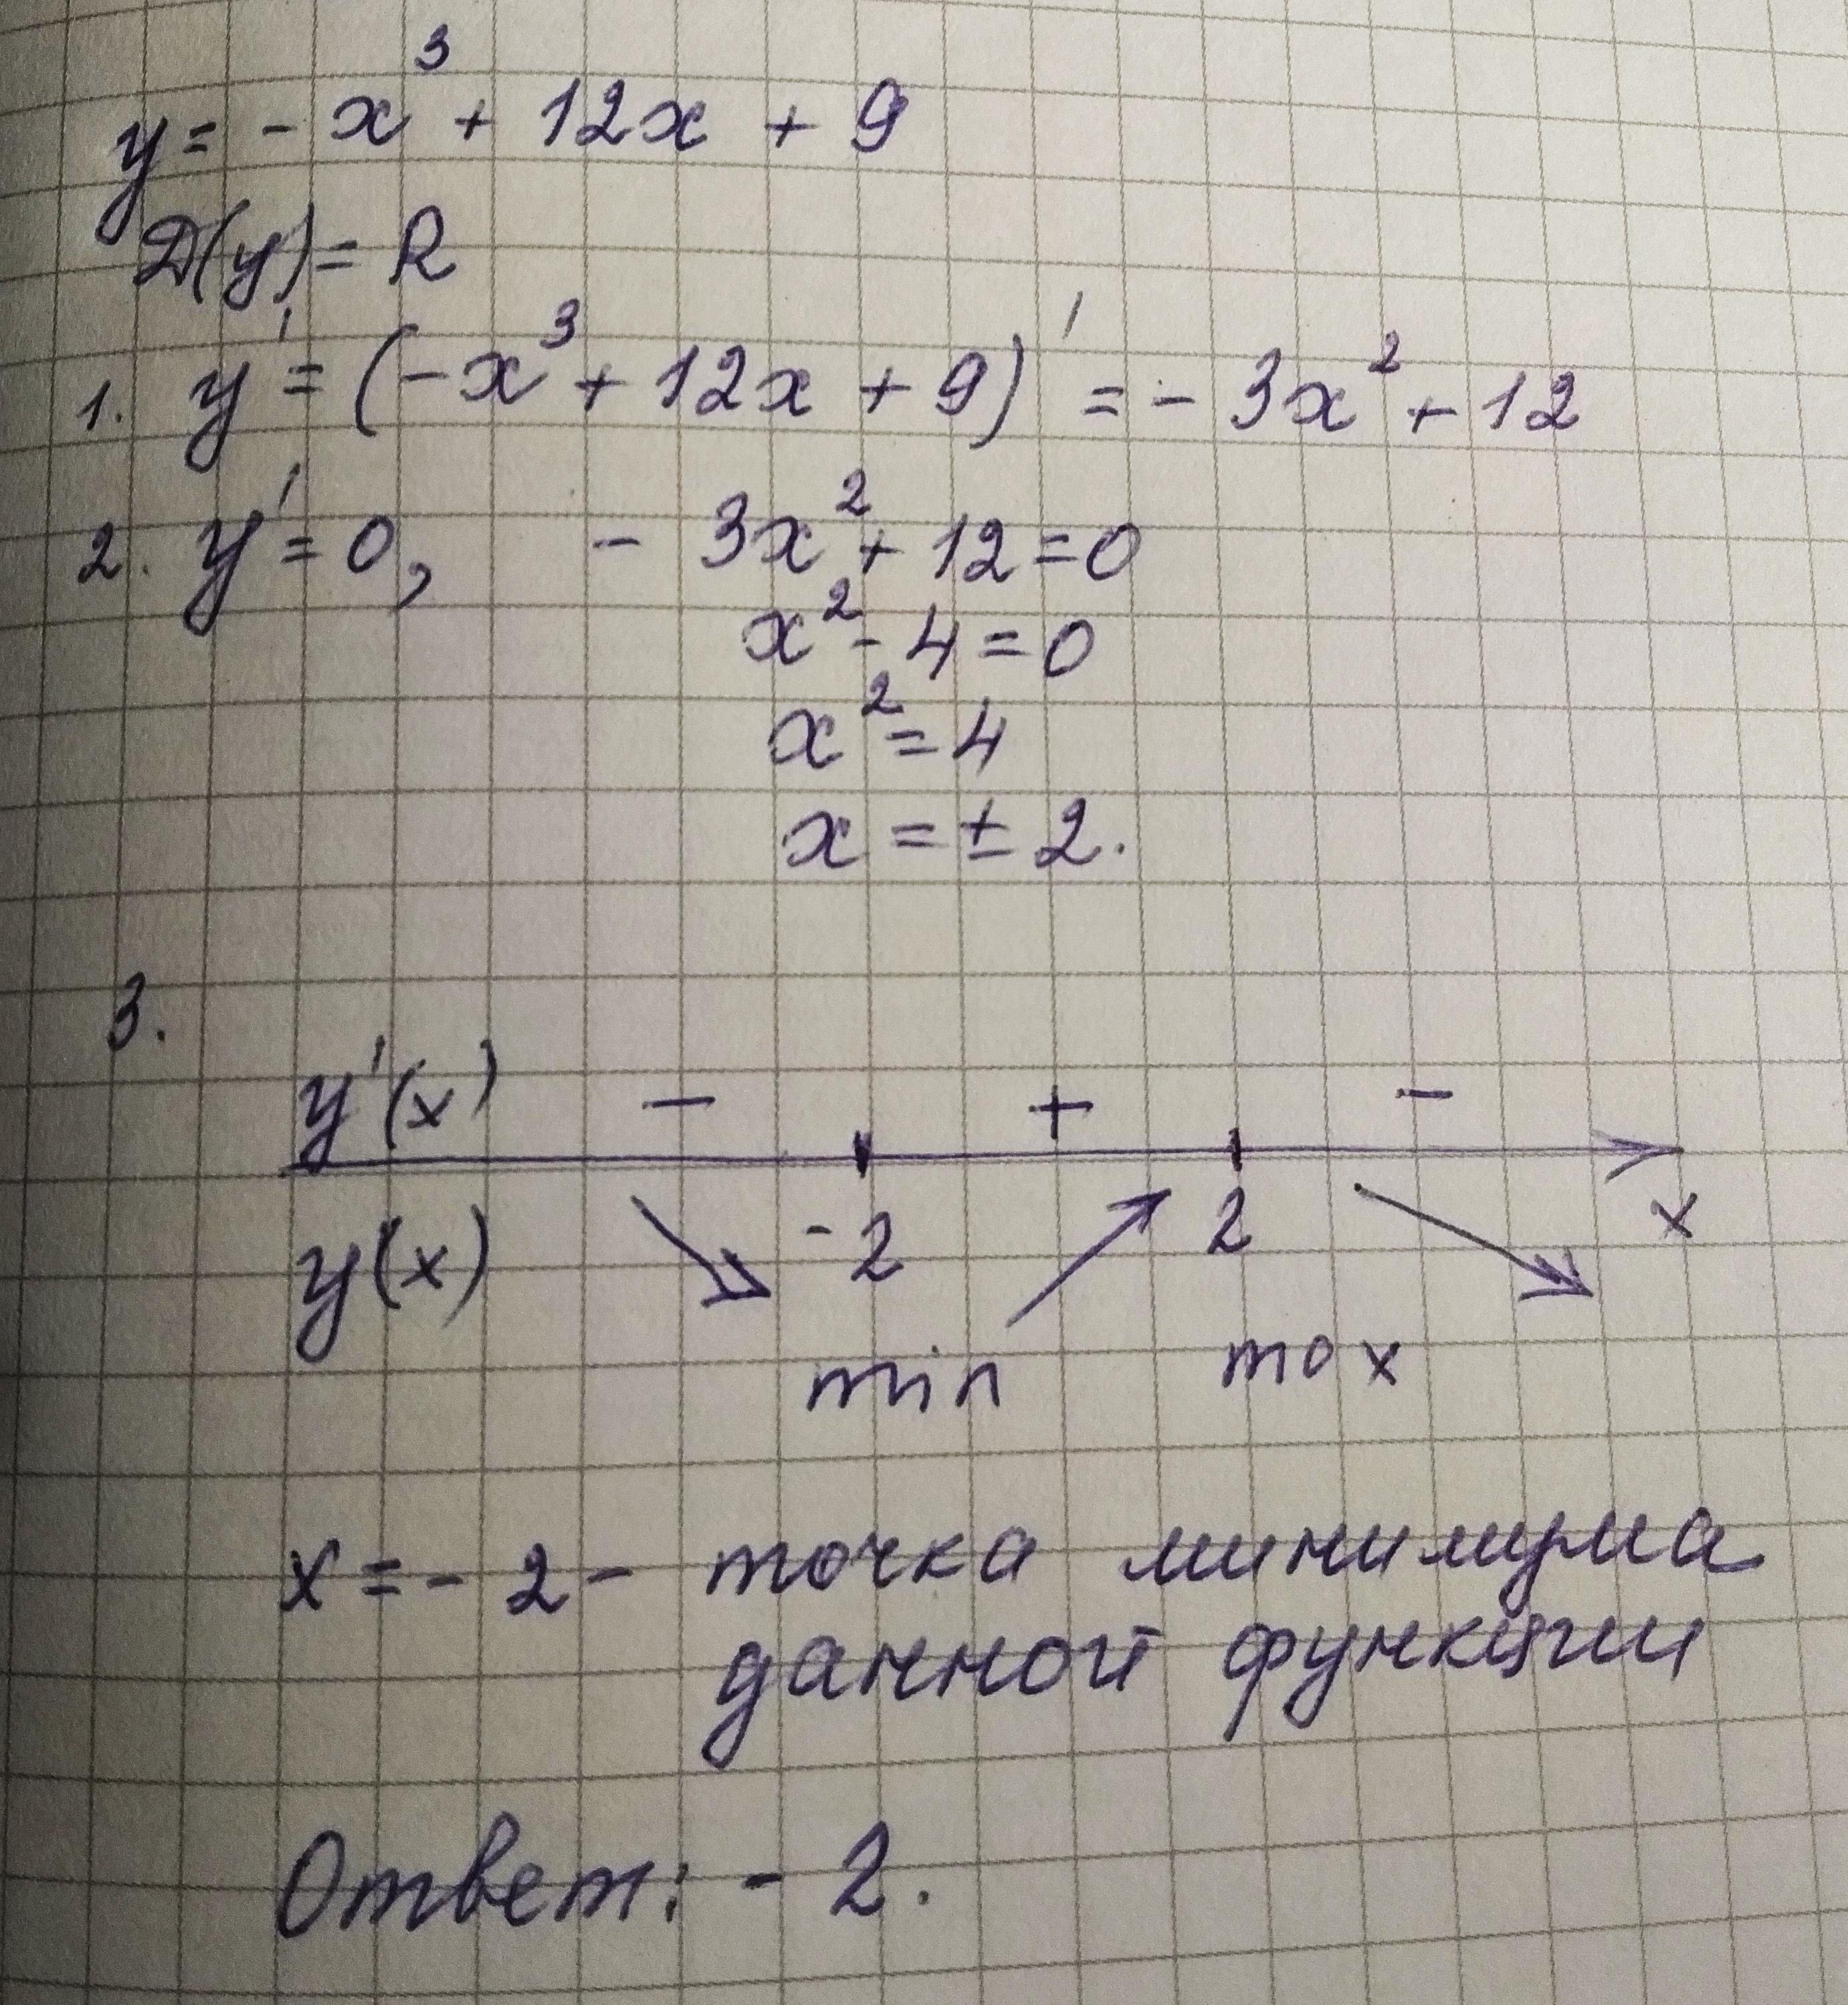 y = - x³ + 12x + 9
D(y) = R
1. y' = (-x³ + 12x + 9)' = - 3x² + 12
2. y' = 0, - 3x² + 12 = 0
x² - 4 = 0
x² = 4
x = ± 2.
3.
y'(x) − + −
y(x) -2 2 x
min max
x = - 2 - точка минимума
данной функции
Ответ: - 2.